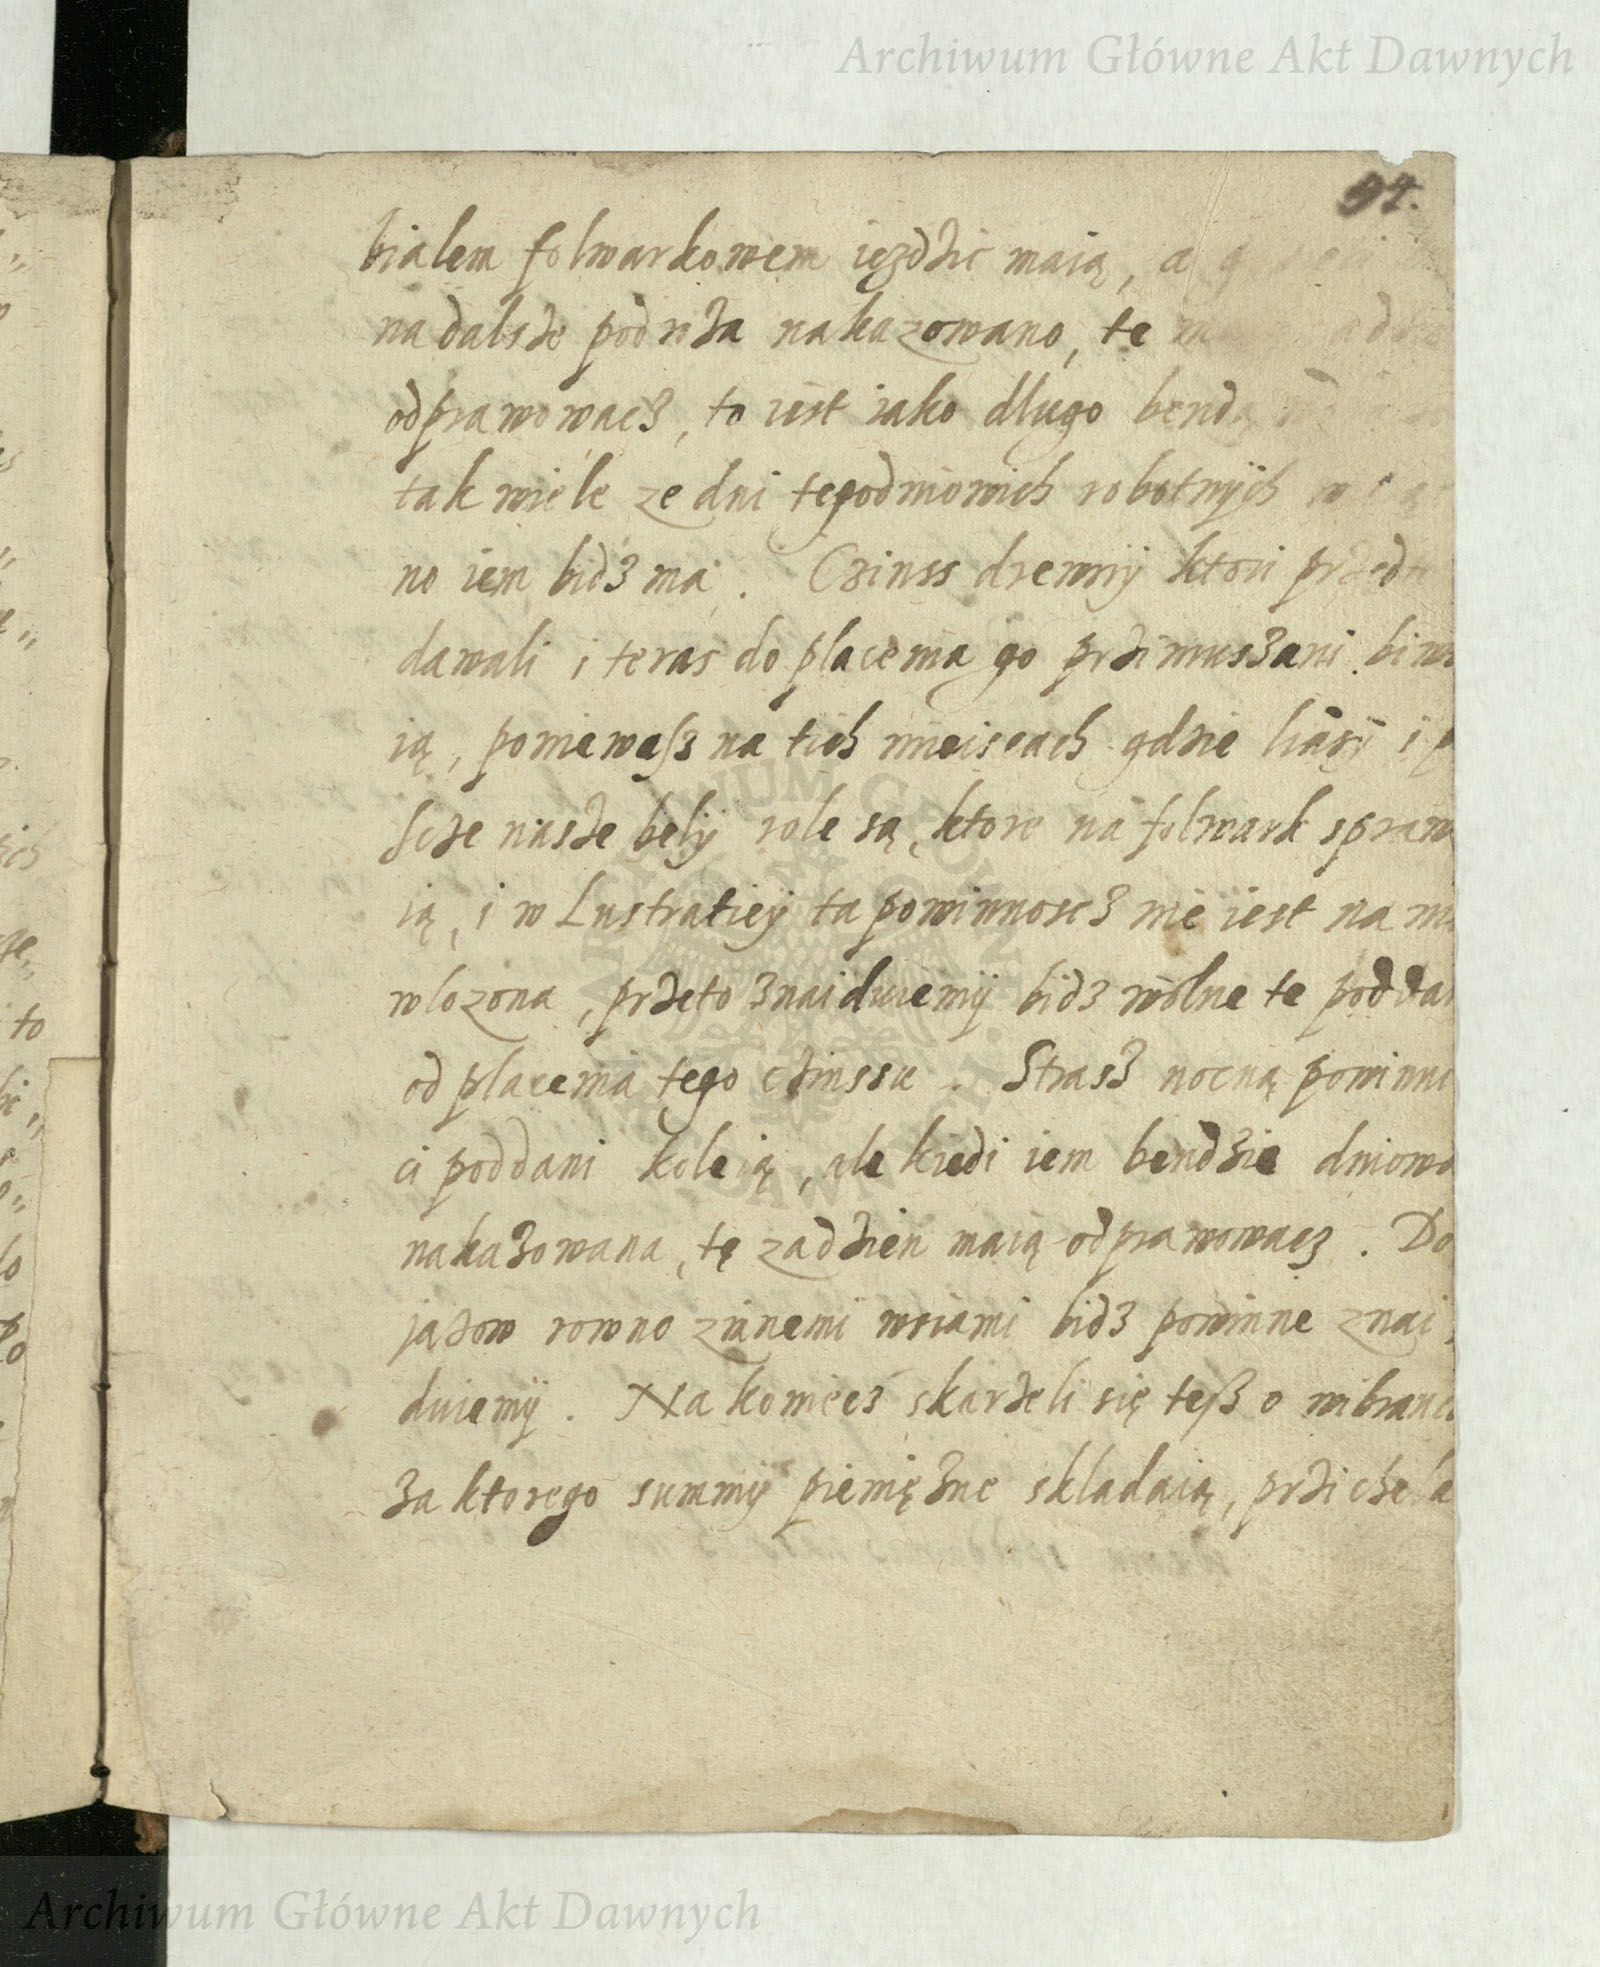 Archiwum Główne Akt Dawnych
94.
bialem folwarkowem iezdzic maią, a
na dalsze podroza nakazowano, te
odprawowacz, to iest iako dlugo benda
tak wiele ze dni tegodniowich robotnÿch
no iem bidz ma. Czinss drewnÿ ktori
dawali i teras do placenia go przimuszani
ią, poniewasz na tich mieiscach gdzie liasÿ i
scze nasze belÿ role są, ktore na folwark
ią, i w Lustratieÿ ta powinnoscz nie iest na
wlozona, przeto znaiduiemÿ bidz wolne te
od placenia tego czinssu. Strasz nocną
ci poddani koleią, ale kiedi iem bendzie
nakazowana, tę za dzien maią odprawowacz. Do
jazow rowno z innemi wsiami bidz powinne znai
duiemÿ. Na koniecz skarzeli się tesz o
za ktorego summÿ pieniężne skladaią,
ARCHIWUM GŁÓWNE AKT DAWNYCH
Archiwum Główne Akt Dawnych